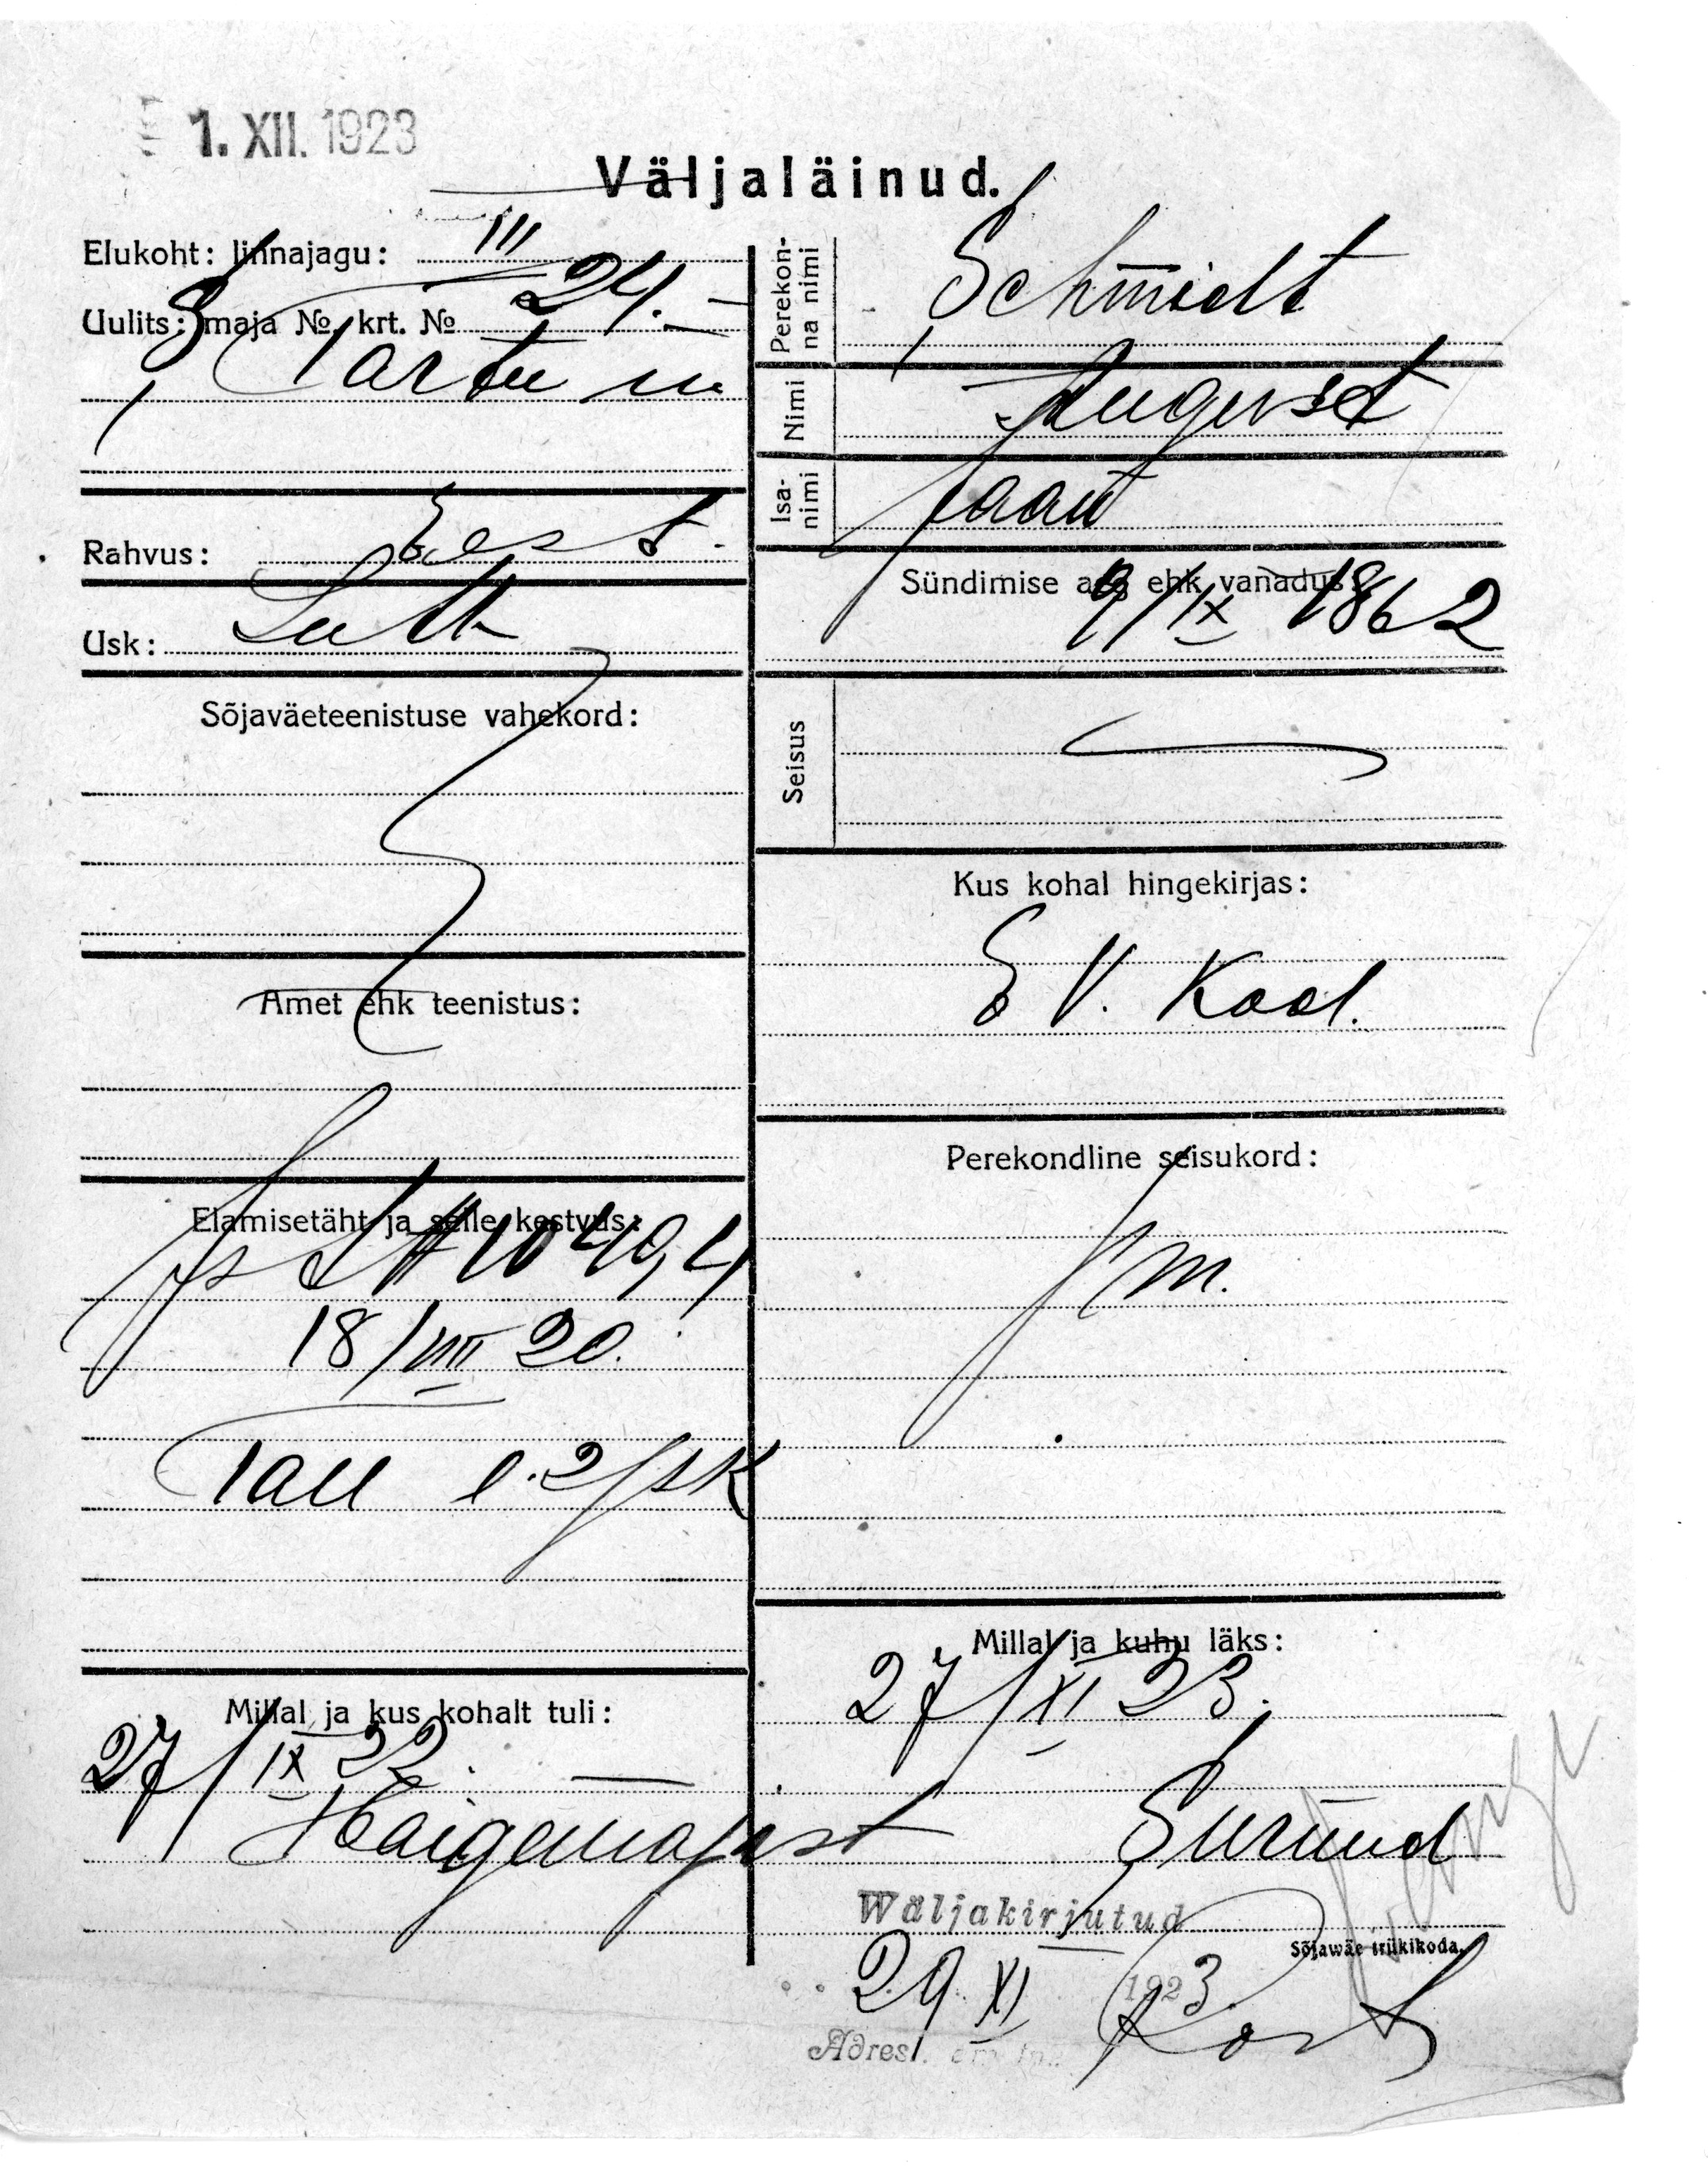 1. XII. 1923
Väljaläinud.
Elukoht: linnajagu: III
Uulits: maja № krt. № 24.
S. Tartu m
Rahvus: Eest.
Usk: Luth
Sõjaväeteenistuse vahekord:
Amet ehk teenistus:
Elamisetäht ja selle kestvus:
10494
18/VIII 20.
Tall l. 2 jsk
Millal ja kus kohalt tuli:
27/IX 22.
Haigemajast
Perekonna nimi
Schmidt
Nimi
August
Isanimi
Jaan
Sündimise aeg ehk vanadus:
9/IX 1862
Seisus
Kus kohal hingekirjas:
E V. Kod.
Perekondline seisukord:
Millal ja kuhu läks:
27/XI 23.
Surnud
Wäljakirjutud
Sõjawäe trükikoda.
29. XI 1923.
Adresl.